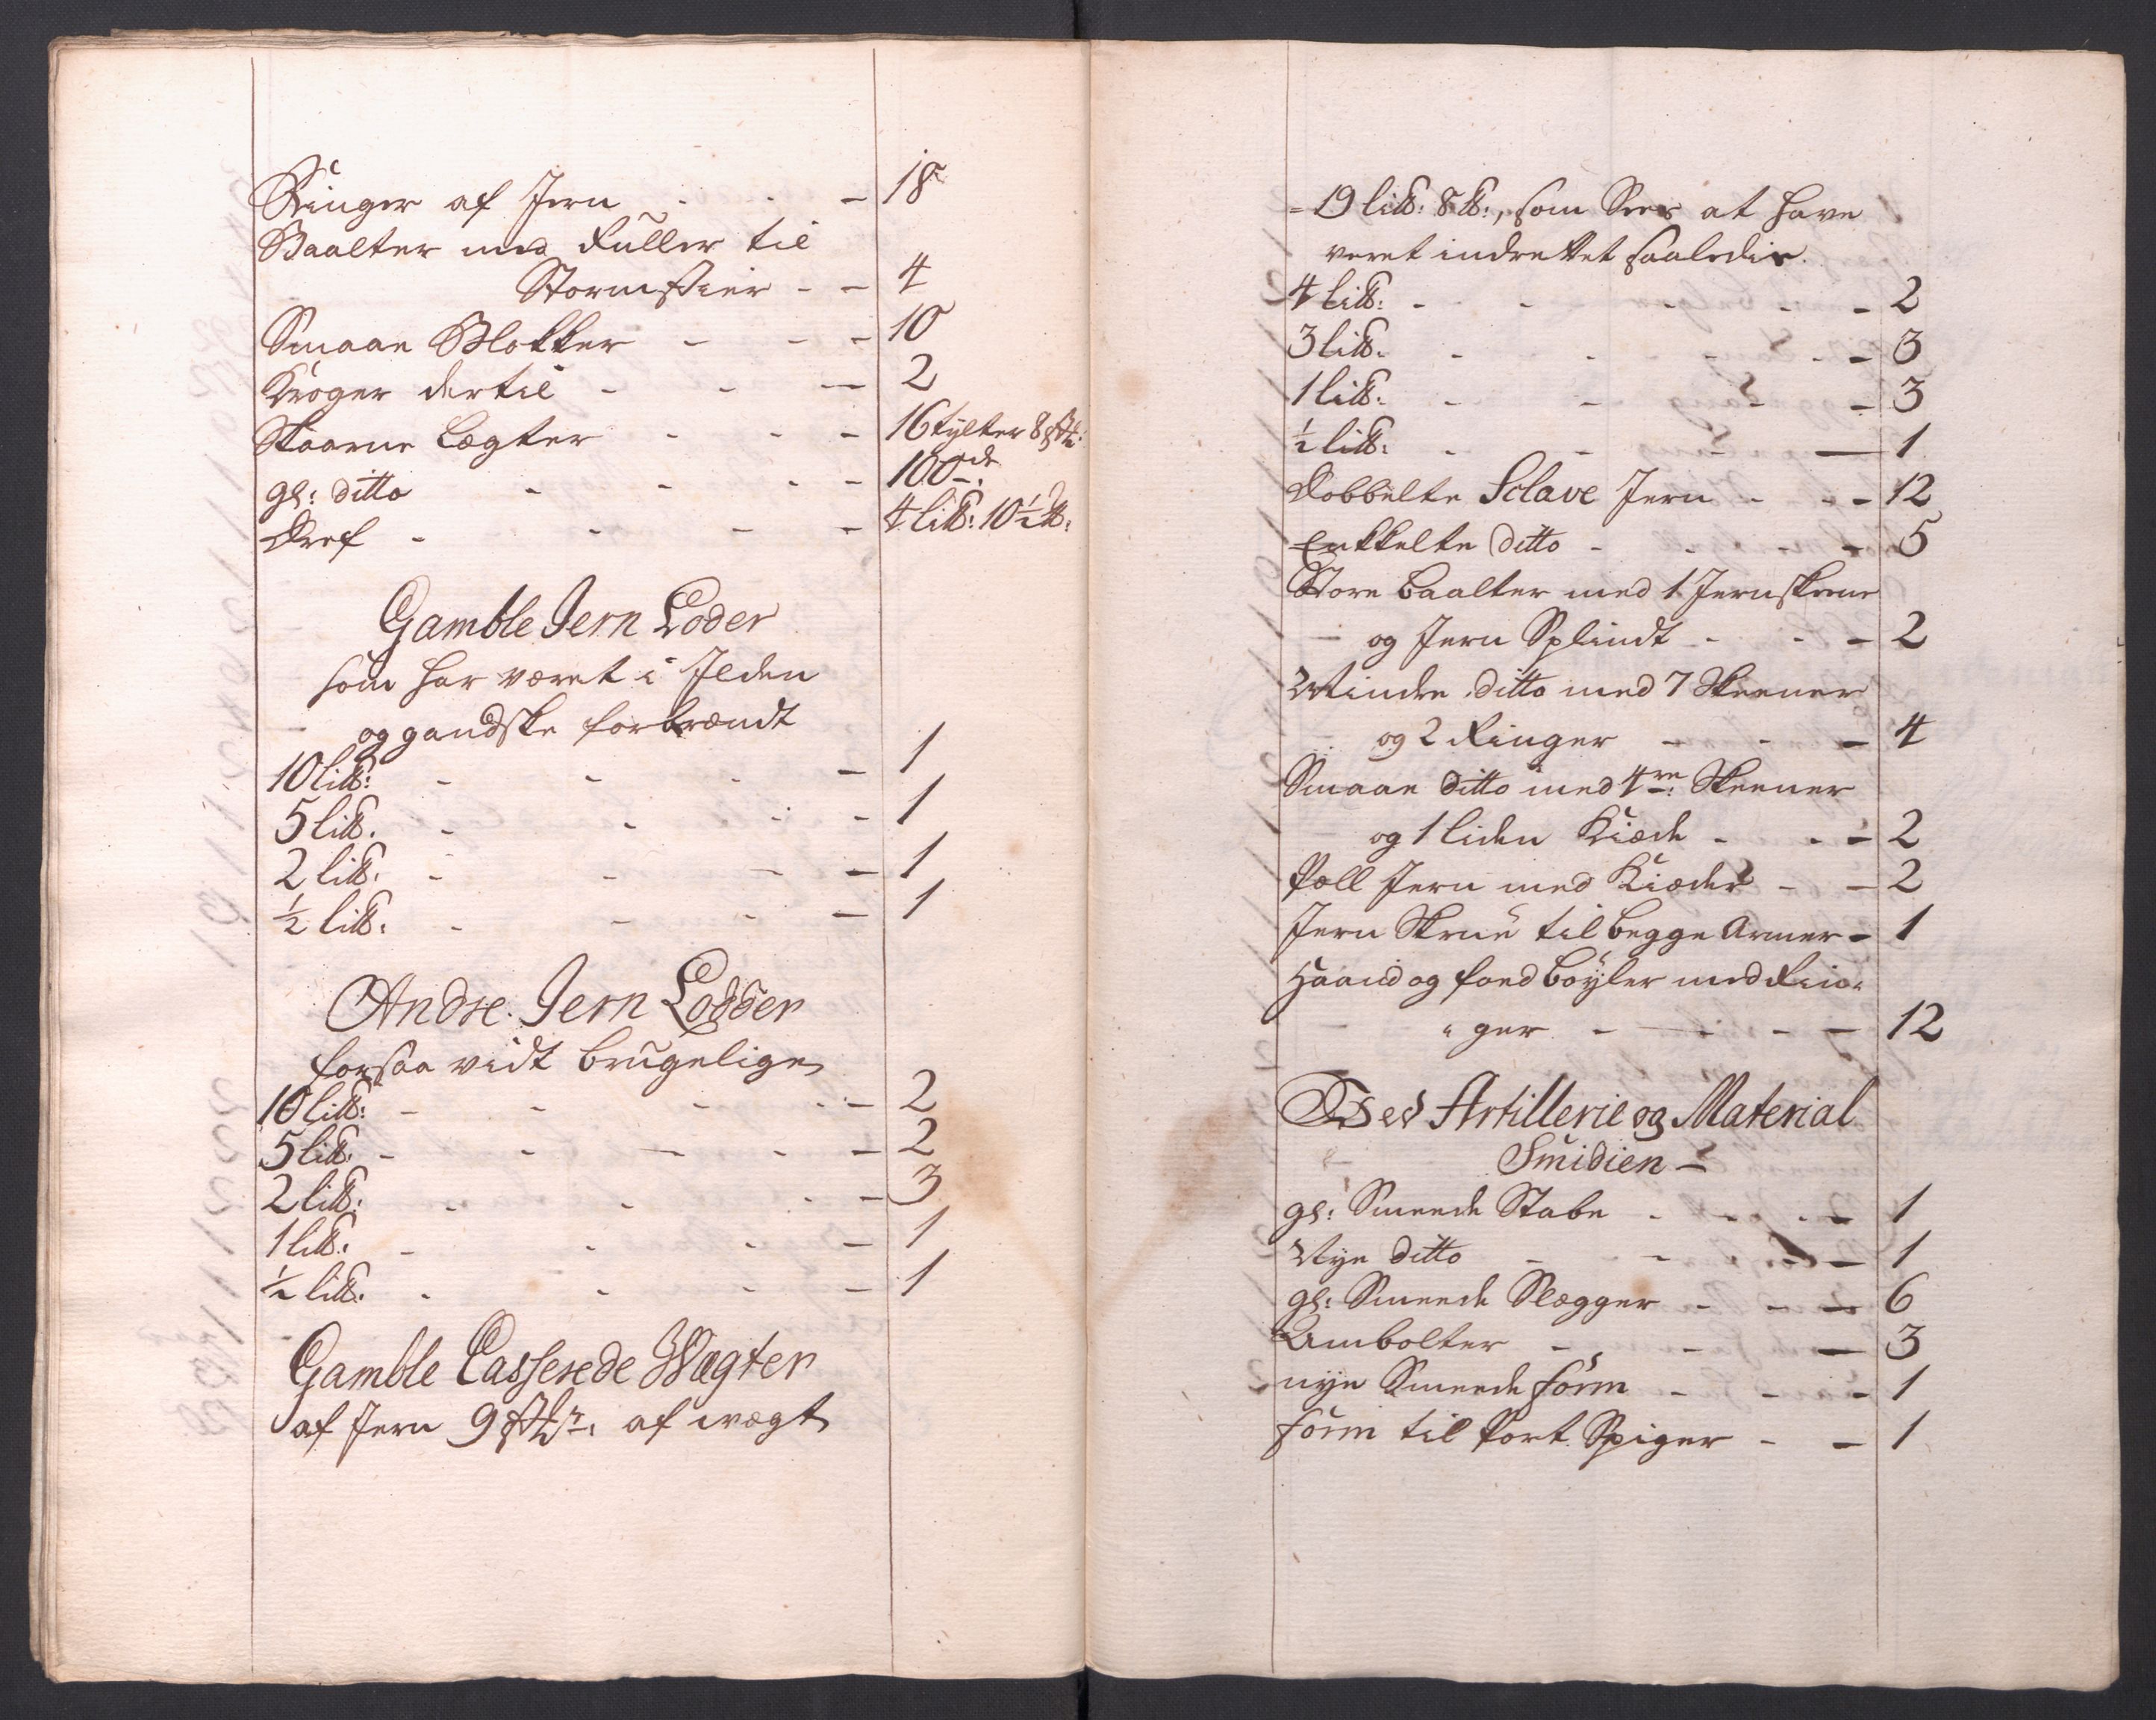 Ringer af Jern - - - 18
Baalter med Ruller til
Stormstier - - 4
Smaae Blokker - - - 10
Kroger dertil - - - 2
Skaarne Lægter - - - 16 tylter 8 st:
gl: ditto - - - - 100de
Dref - - - - 4 lit: 10½ ℔:
Gamble Jern Loder
som har været i Ilden
og gandske forbrændt
10 lit: - - - - 1
5 lit. - - - - 1
2 lit. - - - - 1
½ lit: - - - - 1
Andre Jern Lodder
forsaa vidt brugelige
10 lit: - - - - 2
5 lit: - - - - 2
2 lit: - - - - 3
1 lit: - - - - 1
½ lit: - - - - 1
Gamble Casserede Wægter
af Jern 9 stkr: af wægt
= 19 lit: 8 ℔:, som Sees at have
veret indrettet saaledis.
4 lit: - - - - - 2
3 lit. - - - - - 3
1 lit. - - - - 3
½ lit: - - - - 1
Dobbelte Sclave Jern - - - 12
Enkkelte ditto - - - - 5
Store Baalter med 1 Jernskeene
og Jern Splindt - - - 2
Mindre ditto med 7 Skeener
og 2 Ringer - - - 4
Smaae ditto med 4re: Skeener
og 1 liden Kiæde - - - 2
Pæll Jern med Kiæder - - 2
Jern Skrue til begge Armer - 1
Haand og foed bøyler med Rin-
ger - - - - 12
Ved Artillerie og Material
Smidien -
gl: Smeede Stabe - - - - 1
Nye ditto - - - - 1
gl: Smeede Slægger - - - 6
Ambolter - - - 3
nye Smeede form - - - 1
form til Port Spiger - - 1